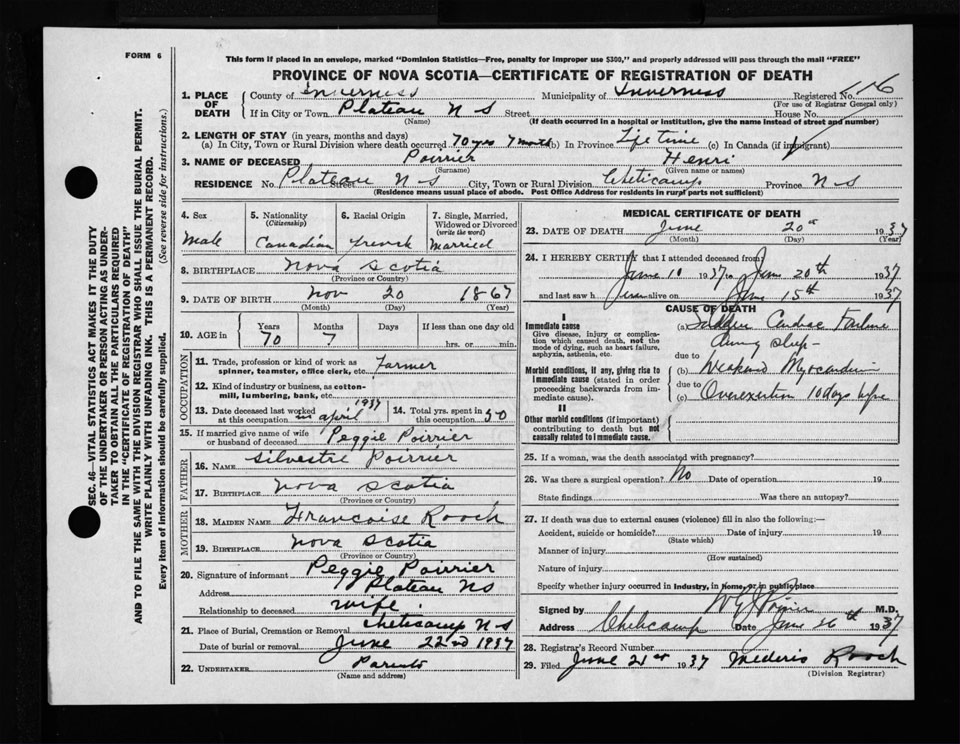 FORM 6
This form if placed in an envelope, marked "Dominion Statistics—Free, penalty for improper use $300," and properly addressed will pass through the mail "FREE"
PROVINCE OF NOVA SCOTIA—CERTIFICATE OF REGISTRATION OF DEATH
1. PLACE OF DEATH County of Inverness Municipality of Inverness Registered No.
(For use of Registrar General only)
If in City or Town Plateau N S Street House No.
(Name) (If death occurred in a hospital or institution, give the name instead of street and number)
2. LENGTH OF STAY (in years, months and days)
(a) In City, Town or Rural Division where death occurred 70 yrs 7 month (b) In Province Life time (c) In Canada (if immigrant)
3. NAME OF DECEASED Poirrier Henri
(Surname) (Given name or names)
RESIDENCE No. Plateau N S Street City, Town or Rural Division Cheticamp Province N S
(Residence means usual place of abode. Post Office Address for residents in rural parts not sufficient)
SEC. 46—VITAL STATISTICS ACT MAKES IT THE DUTY
OF THE UNDERTAKER OR PERSON ACTING AS UNDER-
TAKER TO OBTAIN ALL THE PARTICULARS REQUIRED
IN THE "CERTIFICATE OF REGISTRATION OF DEATH"
AND TO FILE THE SAME WITH THE DIVISION REGISTRAR WHO SHALL ISSUE THE BURIAL PERMIT.
WRITE PLAINLY WITH UNFADING INK. THIS IS A PERMANENT RECORD.
Every item of information should be carefully supplied. (See reverse side for instructions.)
4. Sex 5. Nationality (Citizenship) 6. Racial Origin 7. Single, Married, Widowed or Divorced (write the word)
Male Canadian French Married
8. BIRTHPLACE Nova Scotia
(Province or Country)
9. DATE OF BIRTH Nov 20 1867
(Month) (Day) (Year)
10. AGE in Years Months Days If less than one day old
70 7 hrs. or min.
OCCUPATION
11. Trade, profession or kind of work as spinner, teamster, office clerk, etc. Farmer
12. Kind of industry or business, as cotton-mill, lumbering, bank, etc.
13. Date deceased last worked at this occupation in april 1937 14. Total yrs. spent in this occupation 50
15. If married give name of wife or husband of deceased Peggie Poirrier
FATHER
16. NAME Silvestre Poirrier
17. BIRTHPLACE Nova Scotia
(Province or Country)
MOTHER
18. MAIDEN NAME Francoise Rooch
19. BIRTHPLACE Nova Scotia
(Province or Country)
20. Signature of informant Peggie Poirrier
Address Plateau NS
Relationship to deceased wife.
21. Place of Burial, Cremation or Removal Cheticamp N S
Date of burial or removal June 22nd 1937
22. UNDERTAKER Parents
(Name and address)
MEDICAL CERTIFICATE OF DEATH
23. DATE OF DEATH June 20 1937
(Month) (Day) (Year)
24. I HEREBY CERTIFY that I attended deceased from
June 10 1937 to June 20th 1937
and last saw h alive on June 15th 1937
CAUSE OF DEATH
I
Immediate cause
Give disease, injury or complication which caused death, not the mode of dying, such as heart failure, asphyxia, asthenia, etc.
(a) Sudden Cardiac Failure
during sleep-
due to
Morbid conditions, if any, giving rise to immediate cause (stated in order proceeding backwards from immediate cause).
(b) Weakened Myocardium
due to
(c) Overexertion 10 days before
II
Other morbid conditions (if important) contributing to death but not causally related to immediate cause.
25. If a woman, was the death associated with pregnancy?
26. Was there a surgical operation? No Date of operation 19
State findings Was there an autopsy?
27. If death was due to external causes (violence) fill in also the following:—
Accident, suicide or homicide? Date of injury 19
(State which)
Manner of injury
(How sustained)
Nature of injury
Specify whether injury occurred in industry, in home, or in public place
Signed by M.D.
Address Cheticamp Date June 26th 1937
28. Registrar's Record Number
29. Filed June 21st 1937 Mederic Rooch
(Division Registrar)